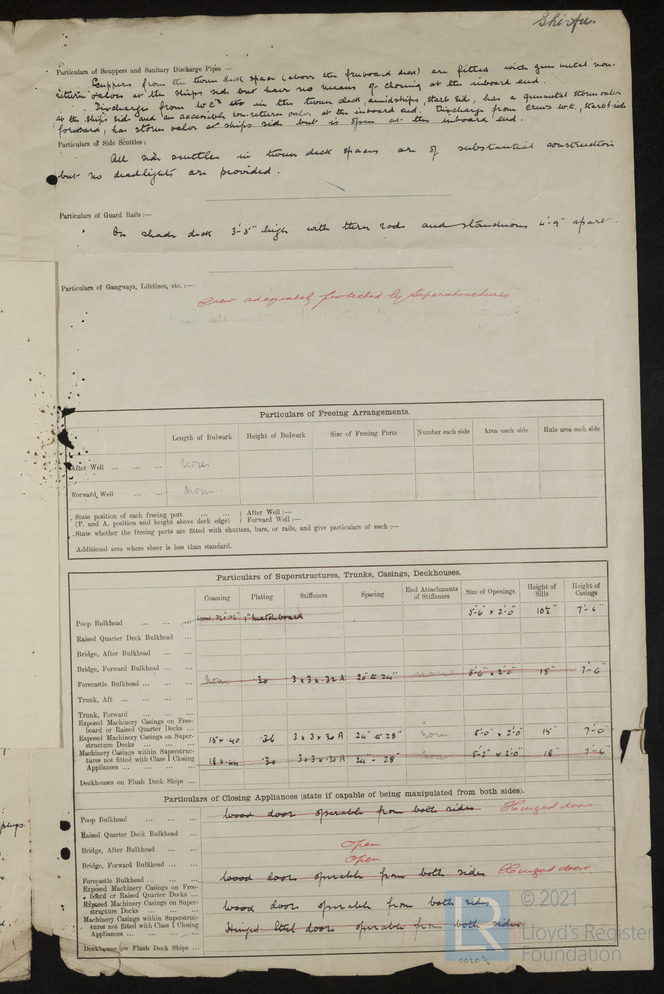 Particulars of Scuppers and Sanitary Discharge Pipes —
Scuppers from the tween deck spaces (above the freeboard deck) are fitted with gun metal non-
return valves at the ships side but have no means of closing at the inboard end.
Discharge from W.C's in the tween deck, amidships, starb side, has a gunmetal storm valve
at the ships side and an accessible non-return valve at the inboard end. Discharge from crews W.C.,
forward, has storm valve at ships side but is open at the inboard end.
Particulars of Side Scuttles :
All side scuttles in tween deck spaces are of substantial construction
but no deadlights are provided.
Particulars of Guard Rails :—
On shade deck 3'-5" high with three rods and stanchions 4'-9" apart.
Particulars of Gangways, Lifelines, etc. :—
Crew adequately protected by Superstructures
Particulars of Freeing Arrangements.
Length of Bulwark Height of Bulwark Size of Freeing Ports Number each side Area each side Rule area each side
After Well ... ... ... None
Forward Well ... ... None
State position of each freeing port ... ... After Well :—
(F. and A. position and height above deck edge) Forward Well :—
State whether the freeing ports are fitted with shutters, bars, or rails, and give particulars of such :—
Additional area where sheer is less than standard.
Particulars of Superstructures, Trunks, Casings, Deckhouses.
Coaming Plating Stiffeners Spacing End Attachments of Stiffeners Size of Openings Height of Sills Height of Casings
Poop Bulkhead ... ... ... 1" matchboard 5'-6" x 2'-0" 10½" 7'-6"
Raised Quarter Deck Bulkhead ...
Bridge, After Bulkhead ... ...
Bridge, Forward Bulkhead ... ...
Forecastle Bulkhead ... ... ... None .30 3 x 3 x .32 A 20" to 24" none 5'-6" x 2'-0" 15" 7'-6"
Trunk, Aft ... ... ... ...
Trunk, Forward ... ... ...
Exposed Machinery Casings on Free-
board or Raised Quarter Decks ...
Exposed Machinery Casings on Super-
structure Decks ... ... ... 18 x .40 .36 3 x 3 x .30 A 24" to 28" none 5'-0" x 2'-0" 15" 7'-0"
Machinery Casings within Superstruc-
tures not fitted with Class I Closing
Appliances ... ... ... ... 18 x .44 .30 3 x 3 x .30 A 24" - 28" none 5'-3" x 2'-0" 18" 7'-6"
Deckhouses on Flush Deck Ships ...
Particulars of Closing Appliances (state if capable of being manipulated from both sides).
Poop Bulkhead ... ... ... Wood door operable from both sides Hinged door
Raised Quarter Deck Bulkhead ...
Bridge, After Bulkhead ... ... Open
Bridge, Forward Bulkhead ... ... Open
Forecastle Bulkhead ... ... ... Wood doors operable from both sides Hinged door
Exposed Machinery Casings on Free-
board or Raised Quarter Decks ...
Exposed Machinery Casings on Super-
structure Decks ... ... ... Wood doors operable from both sides
Machinery Casings within Superstruc-
tures not fitted with Class I Closing
Appliances ... ... ... ... Hinged steel doors operable from both sides
Deckhouses on Flush Deck Ships ...
© 2021
Lloyd's Register
Foundation